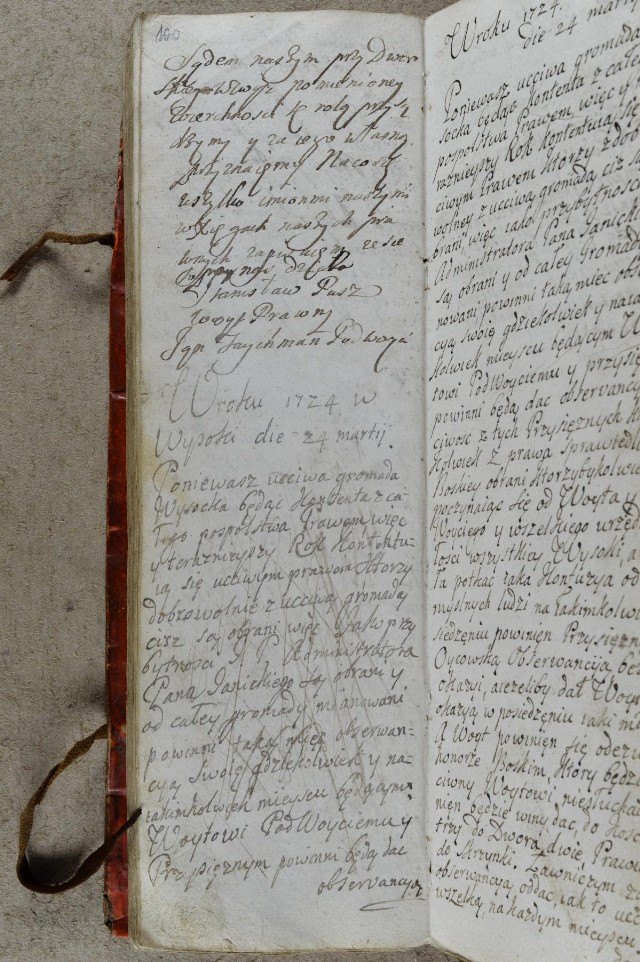 100
Sądem naszym przy Dwor
pomienioney
Zwierchnosci tę rolą przysą
dzamy y za iego własną
przyznaięmy Naco się
wszytko imionmi naszymi
w xięgach naszych pra
wnych zapisuięmy
Stanisław Pusz
Woyt Prawny
Jgn Podwoyci
W roku 1724 w
Wysoki die 24 martij
Poniewasz ucciwa gromada
Wysocka będąc Kontenta z ca
łego pospolstwa Prawem więc
y teraznieyszy Rok Kontentu
ią się ucciwym prawem Ktorzy
dobrowolnie z ucciwą gromadą
cisz są obrani więc Jako przy
bytnosci J P Administratora
Pana Janickiego są obrani y
od całey gromady mianowani
powinni taką miec obserwan
cyą swoię gdziekolwiek y na
iakimkolwiek mieyscu będącym
Woytowi PodWoyciemu y
Przysięznym powinni będą dac
obserwancyą
W roku 1724.
die 24 martij
Poniewasz ucciwa gromada
socka będąc Kontenta z całe
pospolstwa Prawem więc y t
raznieyszy Rok Kontentuią się
ciwym Prawem Ktorzy z dob
wolney z ucciwą gromadą cisz
obrani więc iako przybytnosci
Administratora Pana Janick
są obrani y od całey Gromad
nowani powinni taką miec obs
cyą swoię gdziekolwiek y na ia
Kolwiek mieyscu będącym W
towi PodWoyciemu y przysię
powinni będą dac obserwancy
ciwosc z tych Przysięznych kt
Kolwiek z prawa sprawiedli
Boskiey obrani Ktorzybykolwie
poczynaiąc się od Woyta y
Woyciego y wszelkiego urzęd
łosci wszystkiey Wysoki, a
ła potkac iaka Konfuzya od
myslnych ludzi na iakimkolwi
siedzeniu powinięn Przysięzn
Oycowską Obserwancyią bę
okazyi, aiezeliby dał Woyt
okazyą w posiedzeniu iaki nie
A Woyt powinien się odezw
honorze Boskim, Ktory będzi
ciwny Woytowi niesłuchai
nien będzie winy dac, do Kosc
trzy do Dwora, dwie, Prawu
do Skrzynki. Ławniczym za
obserwancyą, oddac, iak to ucc
wszelką, na kazdym mieyscu